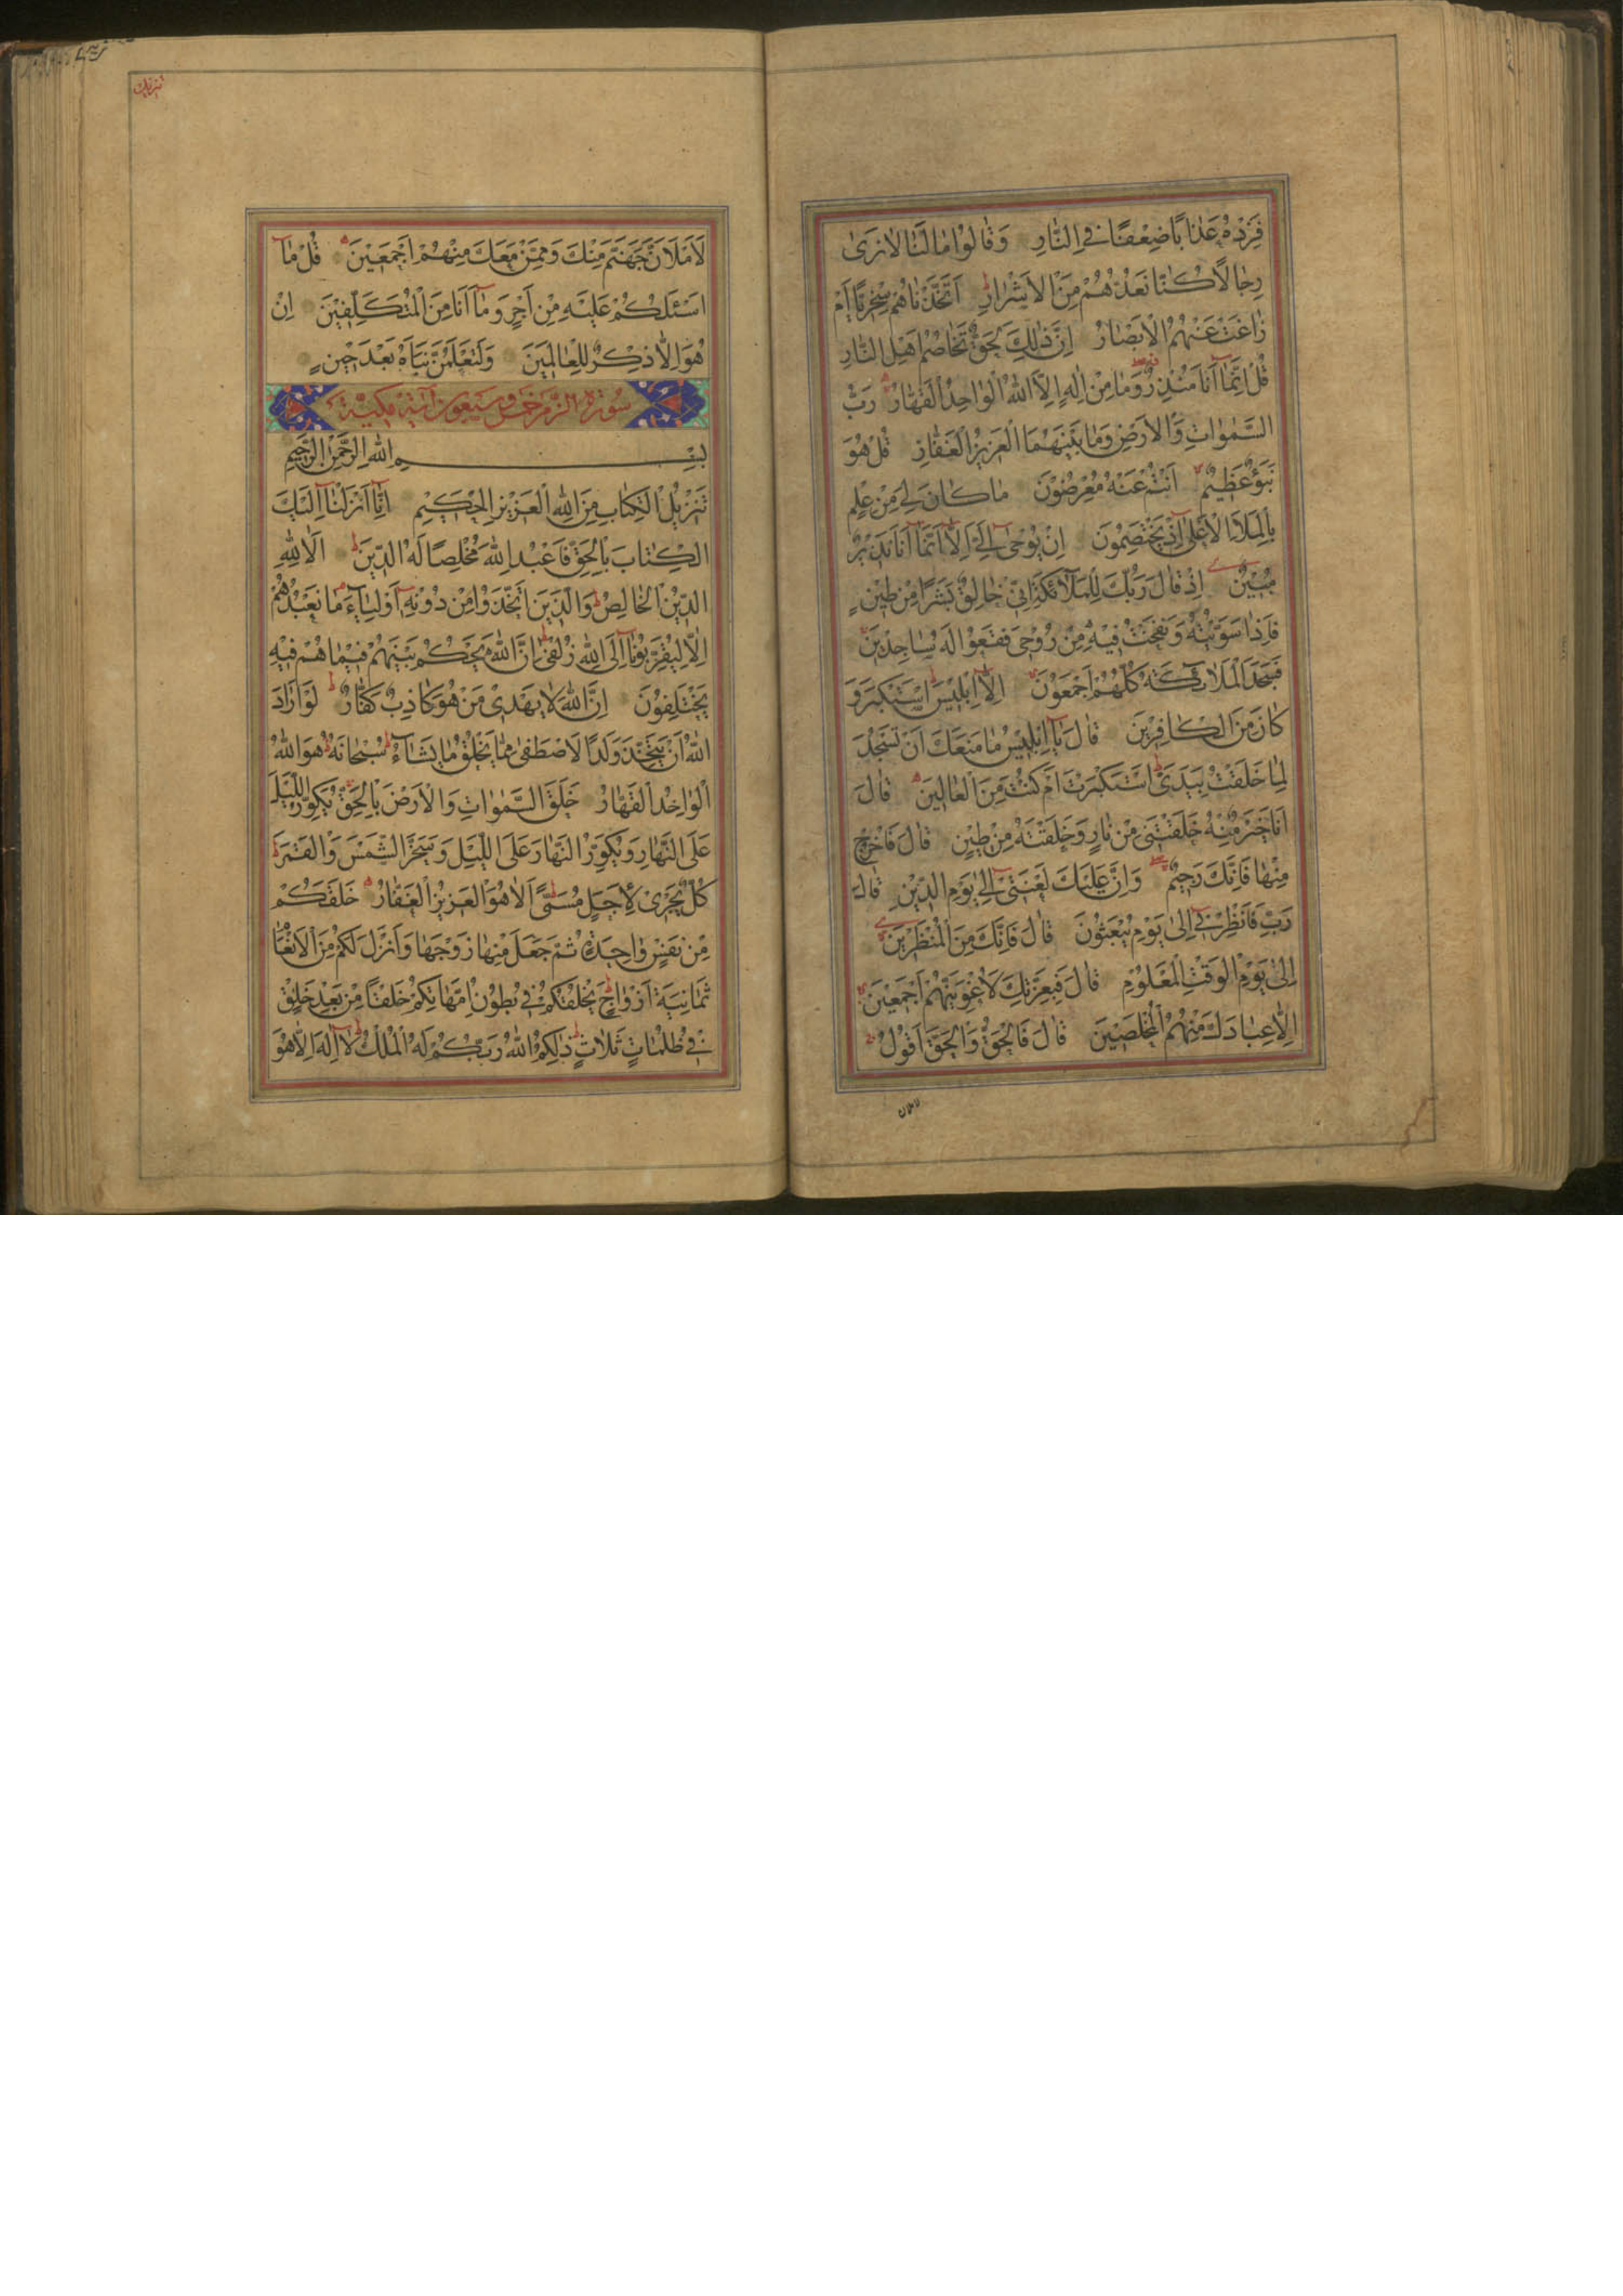 فَزِدْهُ عَذَابًا ضِعْفًا فِي النَّارِ وَقَالُوا مَا لَنَا لَا نَرَىٰ
رِجَالًا كُنَّا نَعُدُّهُمْ مِنَ الْأَشْرَارِ أَتَّخَذْنَاهُمْ سِخْرِيًّا أَمْ
زَاغَتْ عَنْهُمُ الْأَبْصَارُ إِنَّ ذَٰلِكَ لَحَقٌّ تَخَاصُمُ أَهْلِ النَّارِ
قُلْ إِنَّمَا أَنَا مُنْذِرٌ وَمَا مِنْ إِلَٰهٍ إِلَّا اللَّهُ الْوَاحِدُ الْقَهَّارُ رَبُّ
السَّمٰوَاتِ وَالْأَرْضِ وَمَا بَيْنَهُمَا الْعَزِيزُ الْغَفَّارُ قُلْ هُوَ
نَبَؤٌ عَظِيمٌ أَنْتُمْ عَنْهُ مُعْرِضُونَ مَا كَانَ لِيَ مِنْ عِلْمٍ
بِالْمَلَإِ الْأَعْلَىٰ إِذْ يَخْتَصِمُونَ إِنْ يُوحَىٰ إِلَيَّ إِلَّا أَنَّمَا أَنَا نَذِيرٌ
مُبِينٌ إِذْ قَالَ رَبُّكَ لِلْمَلَائِكَةِ إِنِّي خَالِقٌ بَشَرًا مِنْ طِينٍ
فَإِذَا سَوَّيْتُهُ وَنَفَخْتُ فِيهِ مِنْ رُوحِي فَقَعُوا لَهُ سَاجِدِينَ
فَسَجَدَ الْمَلَائِكَةُ كُلُّهُمْ أَجْمَعُونَ إِلَّا إِبْلِيسَ اسْتَكْبَرَ وَ
كَانَ مِنَ الْكَافِرِينَ قَالَ يَا إِبْلِيسُ مَا مَنَعَكَ أَنْ تَسْجُدَ
لِمَا خَلَقْتُ بِيَدَيَّ أَسْتَكْبَرْتَ أَمْ كُنْتَ مِنَ الْعَالِينَ قَالَ
أَنَا خَيْرٌ مِنْهُ خَلَقْتَنِي مِنْ نَارٍ وَخَلَقْتَهُ مِنْ طِينٍ قَالَ فَاخْرُجْ
مِنْهَا فَإِنَّكَ رَجِيمٌ وَإِنَّ عَلَيْكَ لَعْنَتِي إِلَىٰ يَوْمِ الدِّينِ قَالَ
رَبِّ فَأَنْظِرْنِي إِلَىٰ يَوْمِ يُبْعَثُونَ قَالَ فَإِنَّكَ مِنَ الْمُنْظَرِينَ
إِلَىٰ يَوْمِ الْوَقْتِ الْمَعْلُومِ قَالَ فَبِعِزَّتِكَ لَأُغْوِيَنَّهُمْ أَجْمَعِينَ
إِلَّا عِبَادَكَ مِنْهُمُ الْمُخْلَصِينَ قَالَ فَالْحَقُّ وَالْحَقَّ أَقُولُ
لاملان
لَأَمْلَأَنَّ جَهَنَّمَ مِنْكَ وَمِمَّنْ تَبِعَكَ مِنْهُمْ أَجْمَعِينَ قُلْ مَا
أَسْئَلُكُمْ عَلَيْهِ مِنْ أَجْرٍ وَمَا أَنَا مِنَ الْمُتَكَلِّفِينَ إِنْ
هُوَ إِلَّا ذِكْرٌ لِلْعَالَمِينَ وَلَتَعْلَمُنَّ نَبَأَهُ بَعْدَ حِينٍ
سورة الزمر خمس وسبعون آية مكية
بِسْمِ اللَّهِ الرَّحْمَٰنِ الرَّحِيمِ
تَنْزِيلُ الْكِتَابِ مِنَ اللَّهِ الْعَزِيزِ الْحَكِيمِ إِنَّا أَنْزَلْنَا إِلَيْكَ
الْكِتَابَ بِالْحَقِّ فَاعْبُدِ اللَّهَ مُخْلِصًا لَهُ الدِّينَ أَلَا لِلَّهِ
الدِّينُ الْخَالِصُ وَالَّذِينَ اتَّخَذُوا مِنْ دُونِهِ أَوْلِيَاءَ مَا نَعْبُدُهُمْ
إِلَّا لِيُقَرِّبُونَا إِلَى اللَّهِ زُلْفَىٰ إِنَّ اللَّهَ يَحْكُمُ بَيْنَهُمْ فِيمَا هُمْ فِيهِ
يَخْتَلِفُونَ إِنَّ اللَّهَ لَا يَهْدِي مَنْ هُوَ كَاذِبٌ كَفَّارٌ لَوْ أَرَادَ
اللَّهُ أَنْ يَتَّخِذَ وَلَدًا لَاصْطَفَىٰ مِمَّا يَخْلُقُ مَا يَشَاءُ سُبْحَانَهُ هُوَ اللَّهُ
الْوَاحِدُ الْقَهَّارُ خَلَقَ السَّمٰوَاتِ وَالْأَرْضَ بِالْحَقِّ يُكَوِّرُ اللَّيْلَ
عَلَى النَّهَارِ وَيُكَوِّرُ النَّهَارَ عَلَى اللَّيْلِ وَسَخَّرَ الشَّمْسَ وَالْقَمَرَ
كُلٌّ يَجْرِي لِأَجَلٍ مُسَمًّى أَلَا هُوَ الْعَزِيزُ الْغَفَّارُ خَلَقَكُمْ
مِنْ نَفْسٍ وَاحِدَةٍ ثُمَّ جَعَلَ مِنْهَا زَوْجَهَا وَأَنْزَلَ لَكُمْ مِنَ الْأَنْعَامِ
ثَمَانِيَةَ أَزْوَاجٍ يَخْلُقُكُمْ فِي بُطُونِ أُمَّهَاتِكُمْ خَلْقًا مِنْ بَعْدِ خَلْقٍ
فِي ظُلُمَاتٍ ثَلَاثٍ ذَٰلِكُمُ اللَّهُ رَبُّكُمْ لَهُ الْمُلْكُ لَا إِلَٰهَ إِلَّا هُوَ